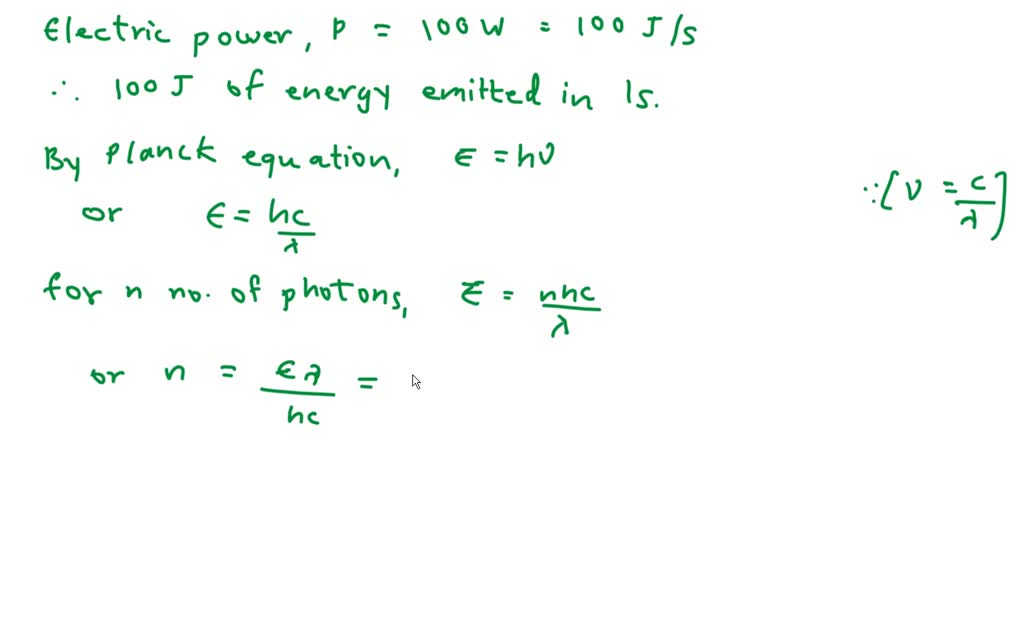 Electric power, P = 100 W = 100 J/s
∴ 100 J of energy emitted in 1s.
By Planck equation, E = hν
∵ [ν = c/λ]
or E = hc/λ
for n no. of photons, E = nhc/λ
or n = Eλ/hc =